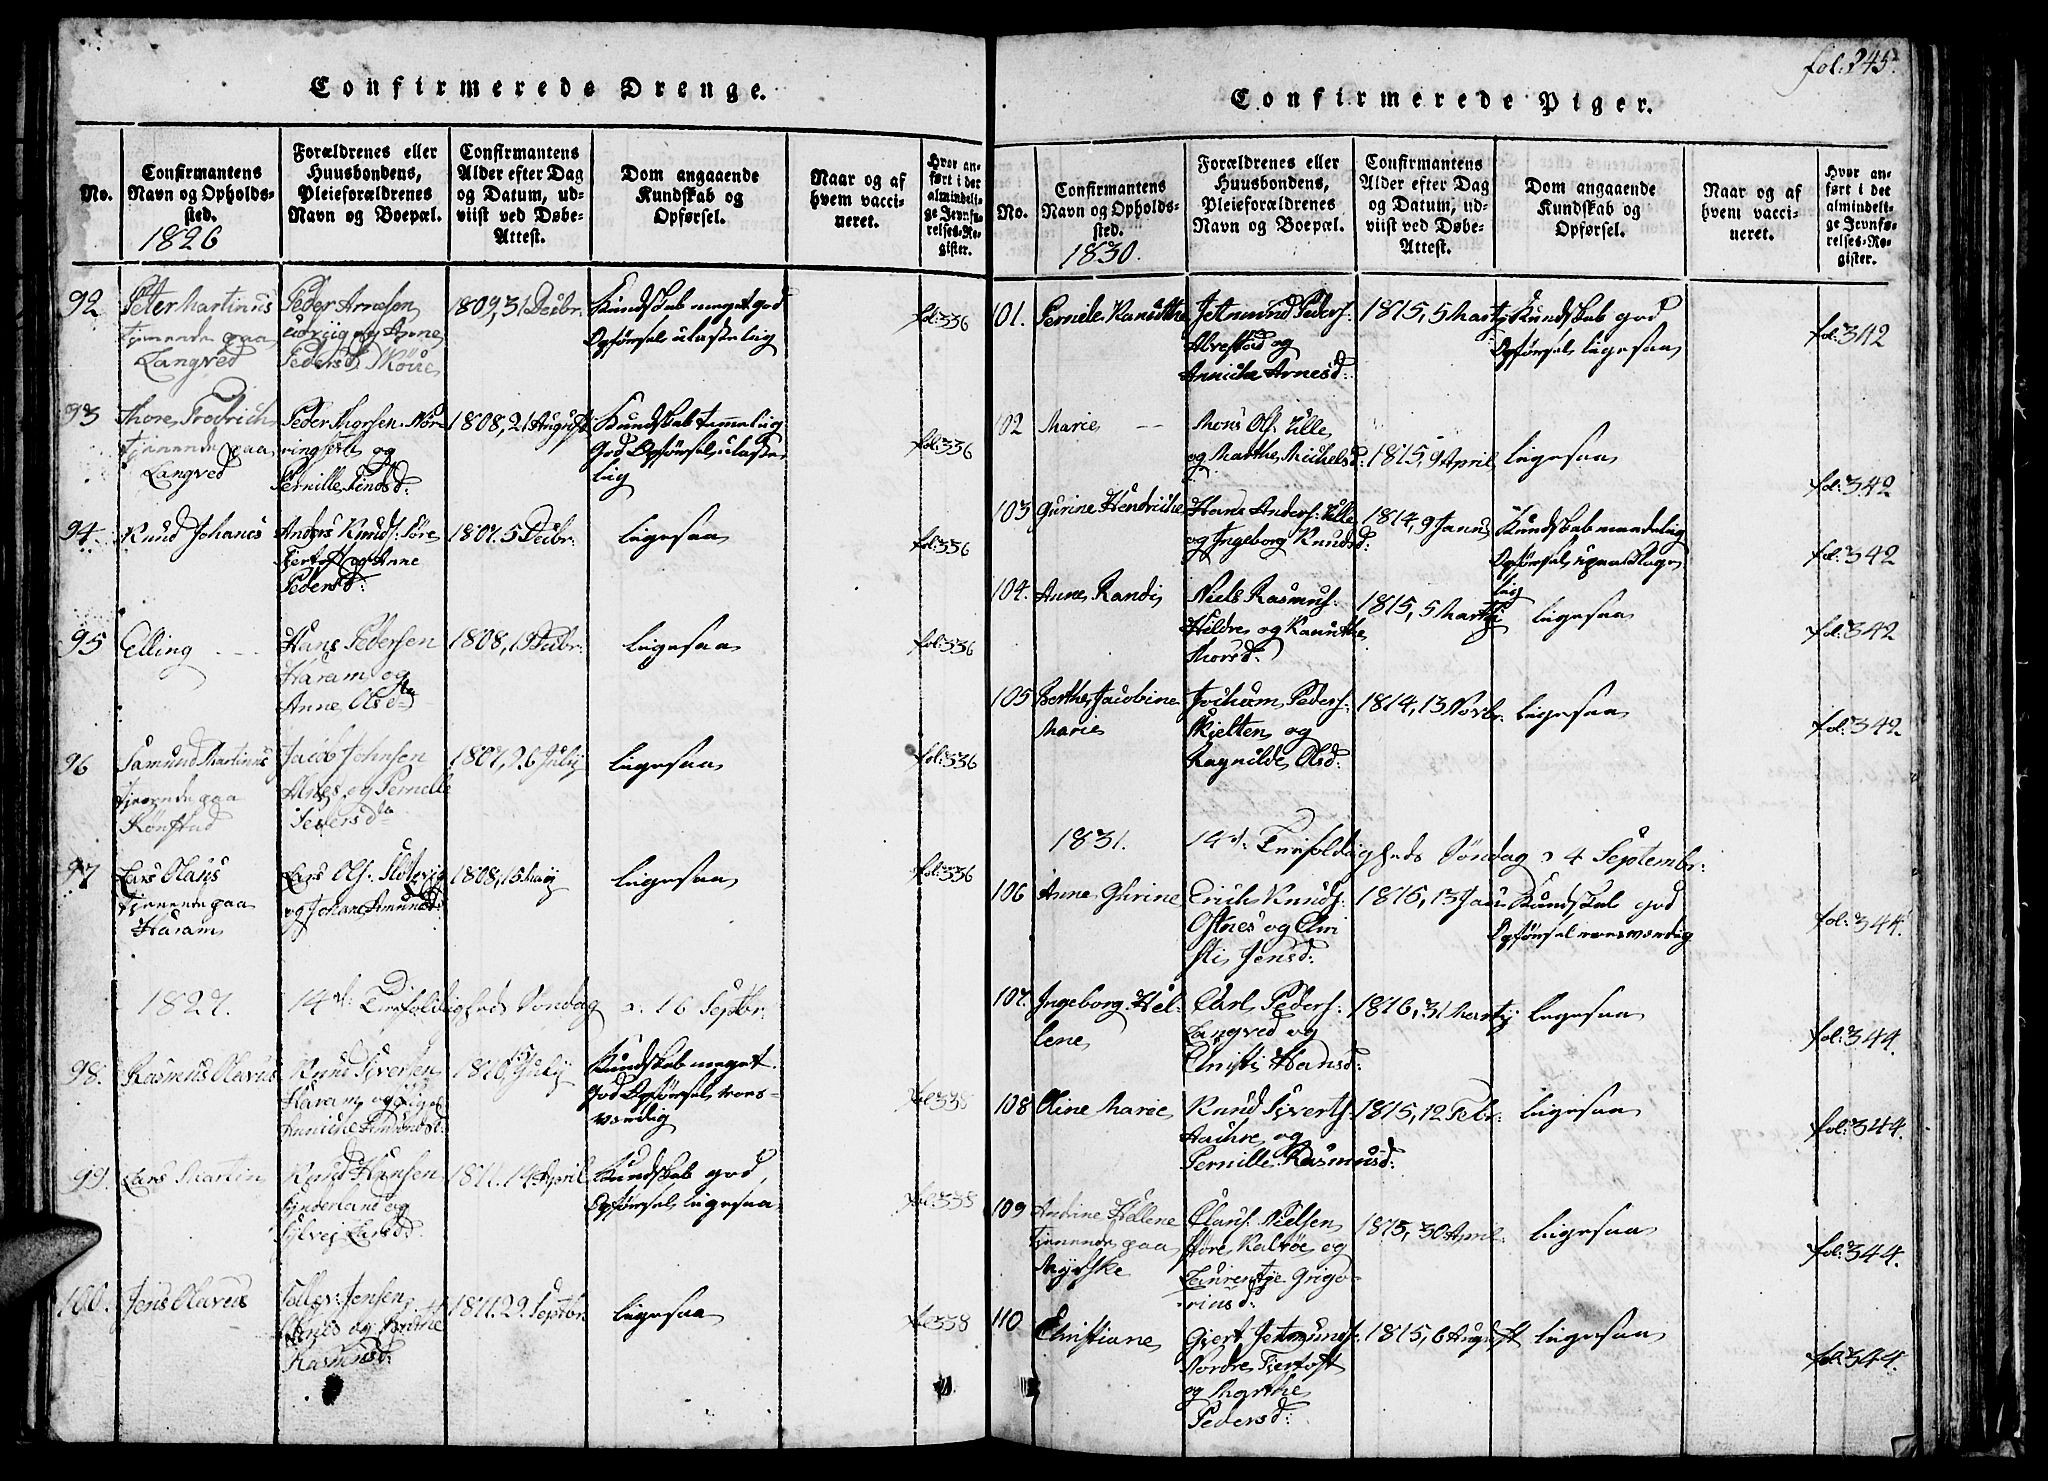 Confirmerede Drenge.
No.
Confirmantens
Navn og Opholds-
sted.
1826
Forældrenes eller
Huusbondens,
Pleieforældrenes
Navn og Boepæl.
Confirmantens
Alder efter Dag
og Datum, ud-
viist ved Døbe-
Attest.
Dom angaaende
Kundskab og
Opførsel.
Naar og af
hvem vacci-
neret.
Hvor an-
ført i det
almindeli-
ge Jevnfø-
relses-Re-
gister.
92
Peter Martinus
tjenende paa
Langved
Peder Arnesen
og Anne
Pedersd.
1809, 31 Decbr.
Kundskab meget god
Opførsel ulastelig
fol: 336
93
Thore Fredrich
tjenende paa
Langved
Peder Thorsen Nør-
ringset og
Pernille Findsd:
1808, 21 August
Kundskab temmelig
god Opførsel ulaste-
lig
fol: 336
94
Knud Johanes
Anders Knuds: Søre
Fjertoft og Anne
Pedersd:
1807. 5 Decbr:
ligesaa
fol: 336
95
Elling
Hans Pedersen
Haram og
Anne Olsda
1808, 19 Decbr:
ligesaa
fol: 336
96
Samund Martinus
tjenende paa
Rønstad
Jacob Johnsen
Alnes og Pernelle
Pedersda
1807, 26 July
ligesaa
fol: 336
97
Lars Olaus
tjenende paa
Haram
Lars Ols:
og Johane Amundsd:
1808, 15 Maij
ligesaa
fol: 336
1827. 14de Trefoldigheds Søndag d: 16 Septbr:
98.
Rasmus Olavus
Knud Sivertsen
Haram og Pige
Annicke Amundsd:
July
Kundskab meget
god Opførsel roes-
værdig
fol 338
99.
Lars Martin
Knud Hansen
Synderland og
Sylvej Larsd:
1811. 14 April
Kundskab god,
Opførsel ligesaa
fol 338
100.
Jens Olaves
Tollev Jensen
Alnes og Brithe
Rasmusd:
1811. 29 Septbr
ligesaa
fol 338
fol: 245.
Confirmerede Piger.
No.
Confirmantens
Navn og Opholds-
sted.
1830.
Forældrenes eller
Huusbondens,
Pleieforældrenes
Navn og Boepæl.
Confirmantens
Alder efter Dag
og Datum, ud-
viist ved Døbe-
Attest.
Dom angaaende
Kundskab og
Opførsel.
Naar og af
hvem vacci-
neret.
Hvor an-
ført i det
almindeli-
ge Jevnfø-
relses-Re-
gister.
101.
Pernele Kanutte
Jetmund Peders:
Alvestad og
Annicke Arnesd:
1815, 5 Martj
Kundskab god
Opførsel ligesaa
fol: 342
102
Marie
Mons Ols: Ulle
og Marthe Michelsd:
1815, 9 April
ligesaa
fol: 342
103
Gurine Hendricke
Hans Anders: Ulle
og Ingeborg Knudsd:
1814, 9 Janus
Kundskab maadelig
Opførsel upaaklage-
lig
fol: 342
104.
Anne Randi
Niels Rasmus:
Hildre og Kanutte
Thorsd:
1815, 5 Martj
ligesaa
fol: 342
105
Berthe Jacobine
Marie
Jochum Peders:
Kjelten og
Ragnilde Olsd:
1814, 13 Novbr.
ligesaa
fol: 342
1831. 14de Trefoldigheds Søndag d 4 Septembr:
106
Anne Gurine
Erich Knuds:
Ostnes og Chri
sti Jensd:
1816, 13 Jan
Kundskab god
Opførsel roesværdig
fol: 344.
107.
Ingeborg Hel-
lene
Carl Peders:
Langved og
Christi Hansd:
1816, 31 Martij
ligesaa
fol: 344.
108
Oline Marie
Knud Siverts:
og
Pernille Rasmusd:
1815, 12 Febr:
ligesaa
fol: 344.
109
Andrine Hellene
tjenende paa
Myrske
Claus Nielsen
Store Kalvøe og
Laurentje Grigo-
riusd:
1815, 30 April.
ligesaa
fol: 344.
110
Christiane
Gjert Jetmunds:
Nordre Fjertoft
og Marthe
Pedersd:
1815, 6 August
ligesaa
fol: 344.